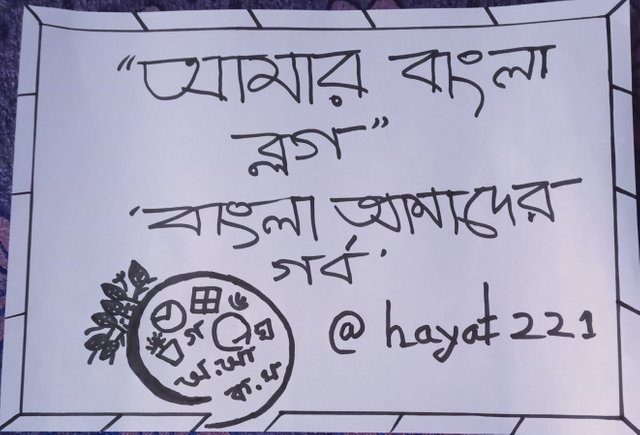 "আমার বাংলা
ব্লগ"
'বাংলা আমাদের
গর্ব'
@hayat221
অ.আ